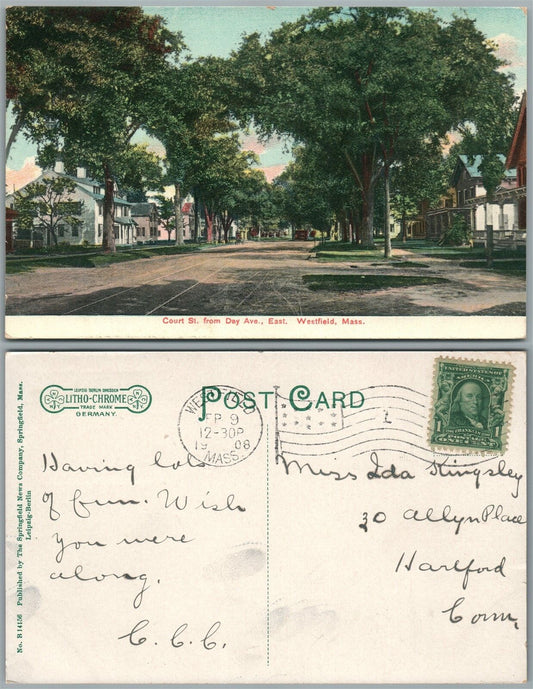 Court St. from Day Ave., East. Westfield, Mass.
LEIPZIG BERLIN DRESDEN
LITHO-CHROME
TRADE MARK
GERMANY.
POST CARD
SEP 9
12-30P
1908
MASS.
1
UNITED STATES
POSTAGE
Having lots
of fun. Wish
you were
along.
C. C. C.
Miss Ida Kingsley
30 Allyn Place
Hartford
Conn.
No. R 14156 Published by The Springfield News Company, Springfield, Mass.
Leipzig-Berlin